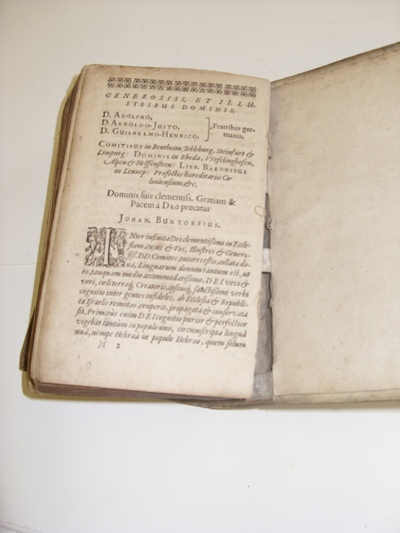 GENEROSISS. ET ILLU-
STRIBUS DOMINIS,
D. ADOLPHO,
D. ARNOLDO-JUSTO,
D. GUILHELMO-HENRICO,
Fratribus ger-
manis,
COMITIBUS in Bentheim, Tekleburg, Steinfurt &
Limpurg: DOMINIS in Rheda, Wevelinghofen,
Alpen & Helffenstein: LIB. BARONIBUS
in Lennep: Præfectis hæreditariis Co-
loniensium, &c.
Dominis suis clementiss. Gratiam &
Pacem à DEO precatur
JOHAN. BUXTORFIUS.
INter infinita Dei clementissima in Eccle-
siam suam & Vos, Illustres & Genero-
siss. DD. Comites, autores istis, collata do-
na, Linguarum donum tantum est, ut
eo, tanquam medio accommodatissimo, DEI vera &
veri, cœli terræq; Creatoris ipsiusq; sanctissimi verbi
cognitio inter gentes infideles, ab Ecclesia & Republi-
ca Israelis remotas, eruperit, propagata & conservata
sit. Primitus enim DEI cognitio purior & perfectior
vigebat tantùm in populo uno, circumscripta linguâ
unâ, nempe Hebræâ in populo Hebræo, quem solum
2